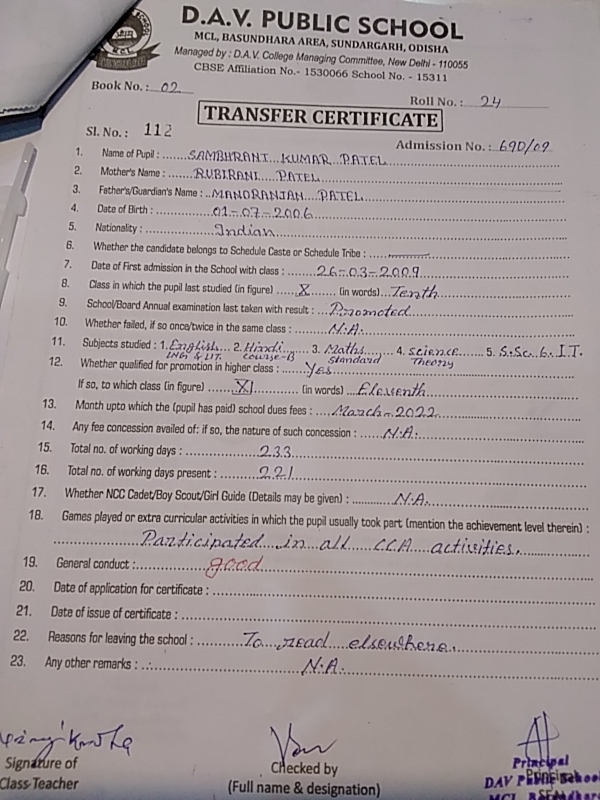 D.A.V. PUBLIC SCHOOL
MCL, BASUNDHARA AREA, SUNDARGARH, ODISHA
Managed by : D.A.V. College Managing Committee, New Delhi - 110055
CBSE Affiliation No.- 1530066 School No. - 15311
Book No. : 02
Roll No. : 24
TRANSFER CERTIFICATE
Sl. No. : 112
Admission No. : 690/09
1. Name of Pupil : SAMBHRANT KUMAR PATEL
2. Mother's Name : RUBIRANI PATEL
3. Father's/Guardian's Name : MANORANJAN PATEL
4. Date of Birth : 01-07-2006
5. Nationality : Indian
6. Whether the candidate belongs to Schedule Caste or Schedule Tribe :
7. Date of First admission in the School with class : 26-03-2009
8. Class in which the pupil last studied (in figure) X (in words) Tenth
9. School/Board Annual examination last taken with result : Promoted
10. Whether failed, if so once/twice in the same class : N.A.
11. Subjects studied : 1. English 2. Hindi 3. Maths 4. Science 5. S.Sc. 6. I.T.
LNG & LIT. Course-B Standard Theory
12. Whether qualified for promotion in higher class : Yes
If so, to which class (in figure) XI (in words) Eleventh
13. Month upto which the (pupil has paid) school dues fees : March-2022
14. Any fee concession availed of: if so, the nature of such concession : N.A.
15. Total no. of working days : 233
16. Total no. of working days present : 221
17. Whether NCC Cadet/Boy Scout/Girl Guide (Details may be given) : N.A.
18. Games played or extra curricular activities in which the pupil usually took part (mention the achievement level therein) :
Participated in all CCA activities.
19. General conduct : good
20. Date of application for certificate :
21. Date of issue of certificate :
22. Reasons for leaving the school : To read elsewhere.
23. Any other remarks : N.A.
Signature of
Class Teacher
Checked by
(Full name & designation)
Principal
DAV Public School